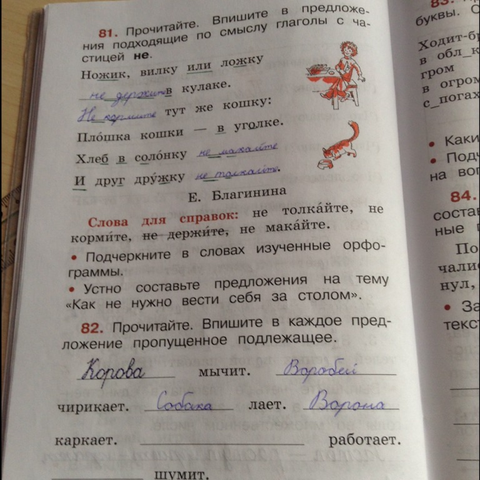 81. Прочитайте. Впишите в предложе-
ния подходящие по смыслу глаголы с ча-
стицей не.
Ножик, вилку или ложку
не держите в кулаке.
Не кормите тут же кошку:
Пло́шка кошки — в уголке.
Хлеб в соло́нку не макайте
И друг дру́жку не толкайте.
Е. Благинина
Слова для справок: не толка́йте, не
корми́те, не держи́те, не мака́йте.
• Подчеркните в словах изученные орфо-
граммы.
• Устно составьте предложения на тему
«Как не нужно вести себя за столом».
82. Прочитайте. Впишите в каждое пред-
ложение пропущенное подлежащее.
Корова мычит. Воробей
чирикает. Собака лает. Ворона
каркает. работает.
шумит.
буквы. С
Ходит-бр
в обл_к
гром
в огром
с_погах
• Каки
• Подч
на воп
84.
состав
ные п
По
чалис
нул,
• За
текст